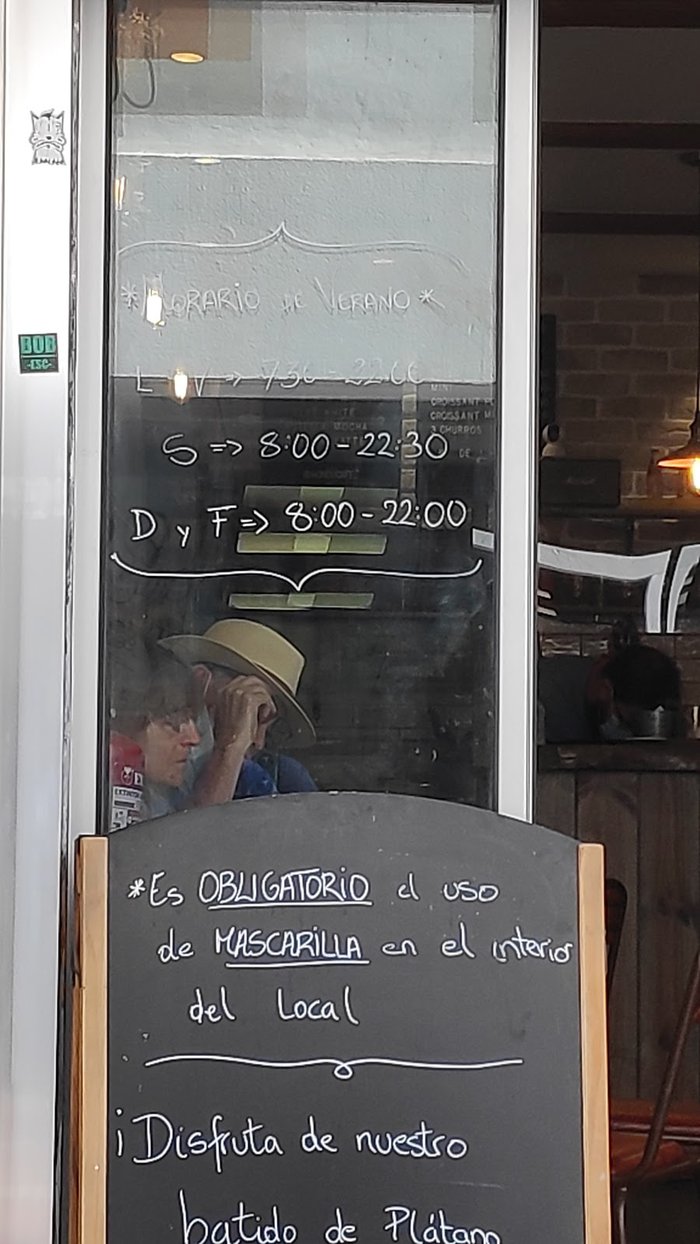 *HORARIO DE VERANO*
L - V => 7:30 - 22:00
S => 8:00 - 22:30
D y F => 8:00 - 22:00
BOB
-ESC-
MINI
CROISSANT
CROISSANT
3 CHURROS
MOCHA
*Es OBLIGATORIO el uso
de MASCARILLA en el interior
del Local
¡Disfruta de nuestro
batido de Plátano